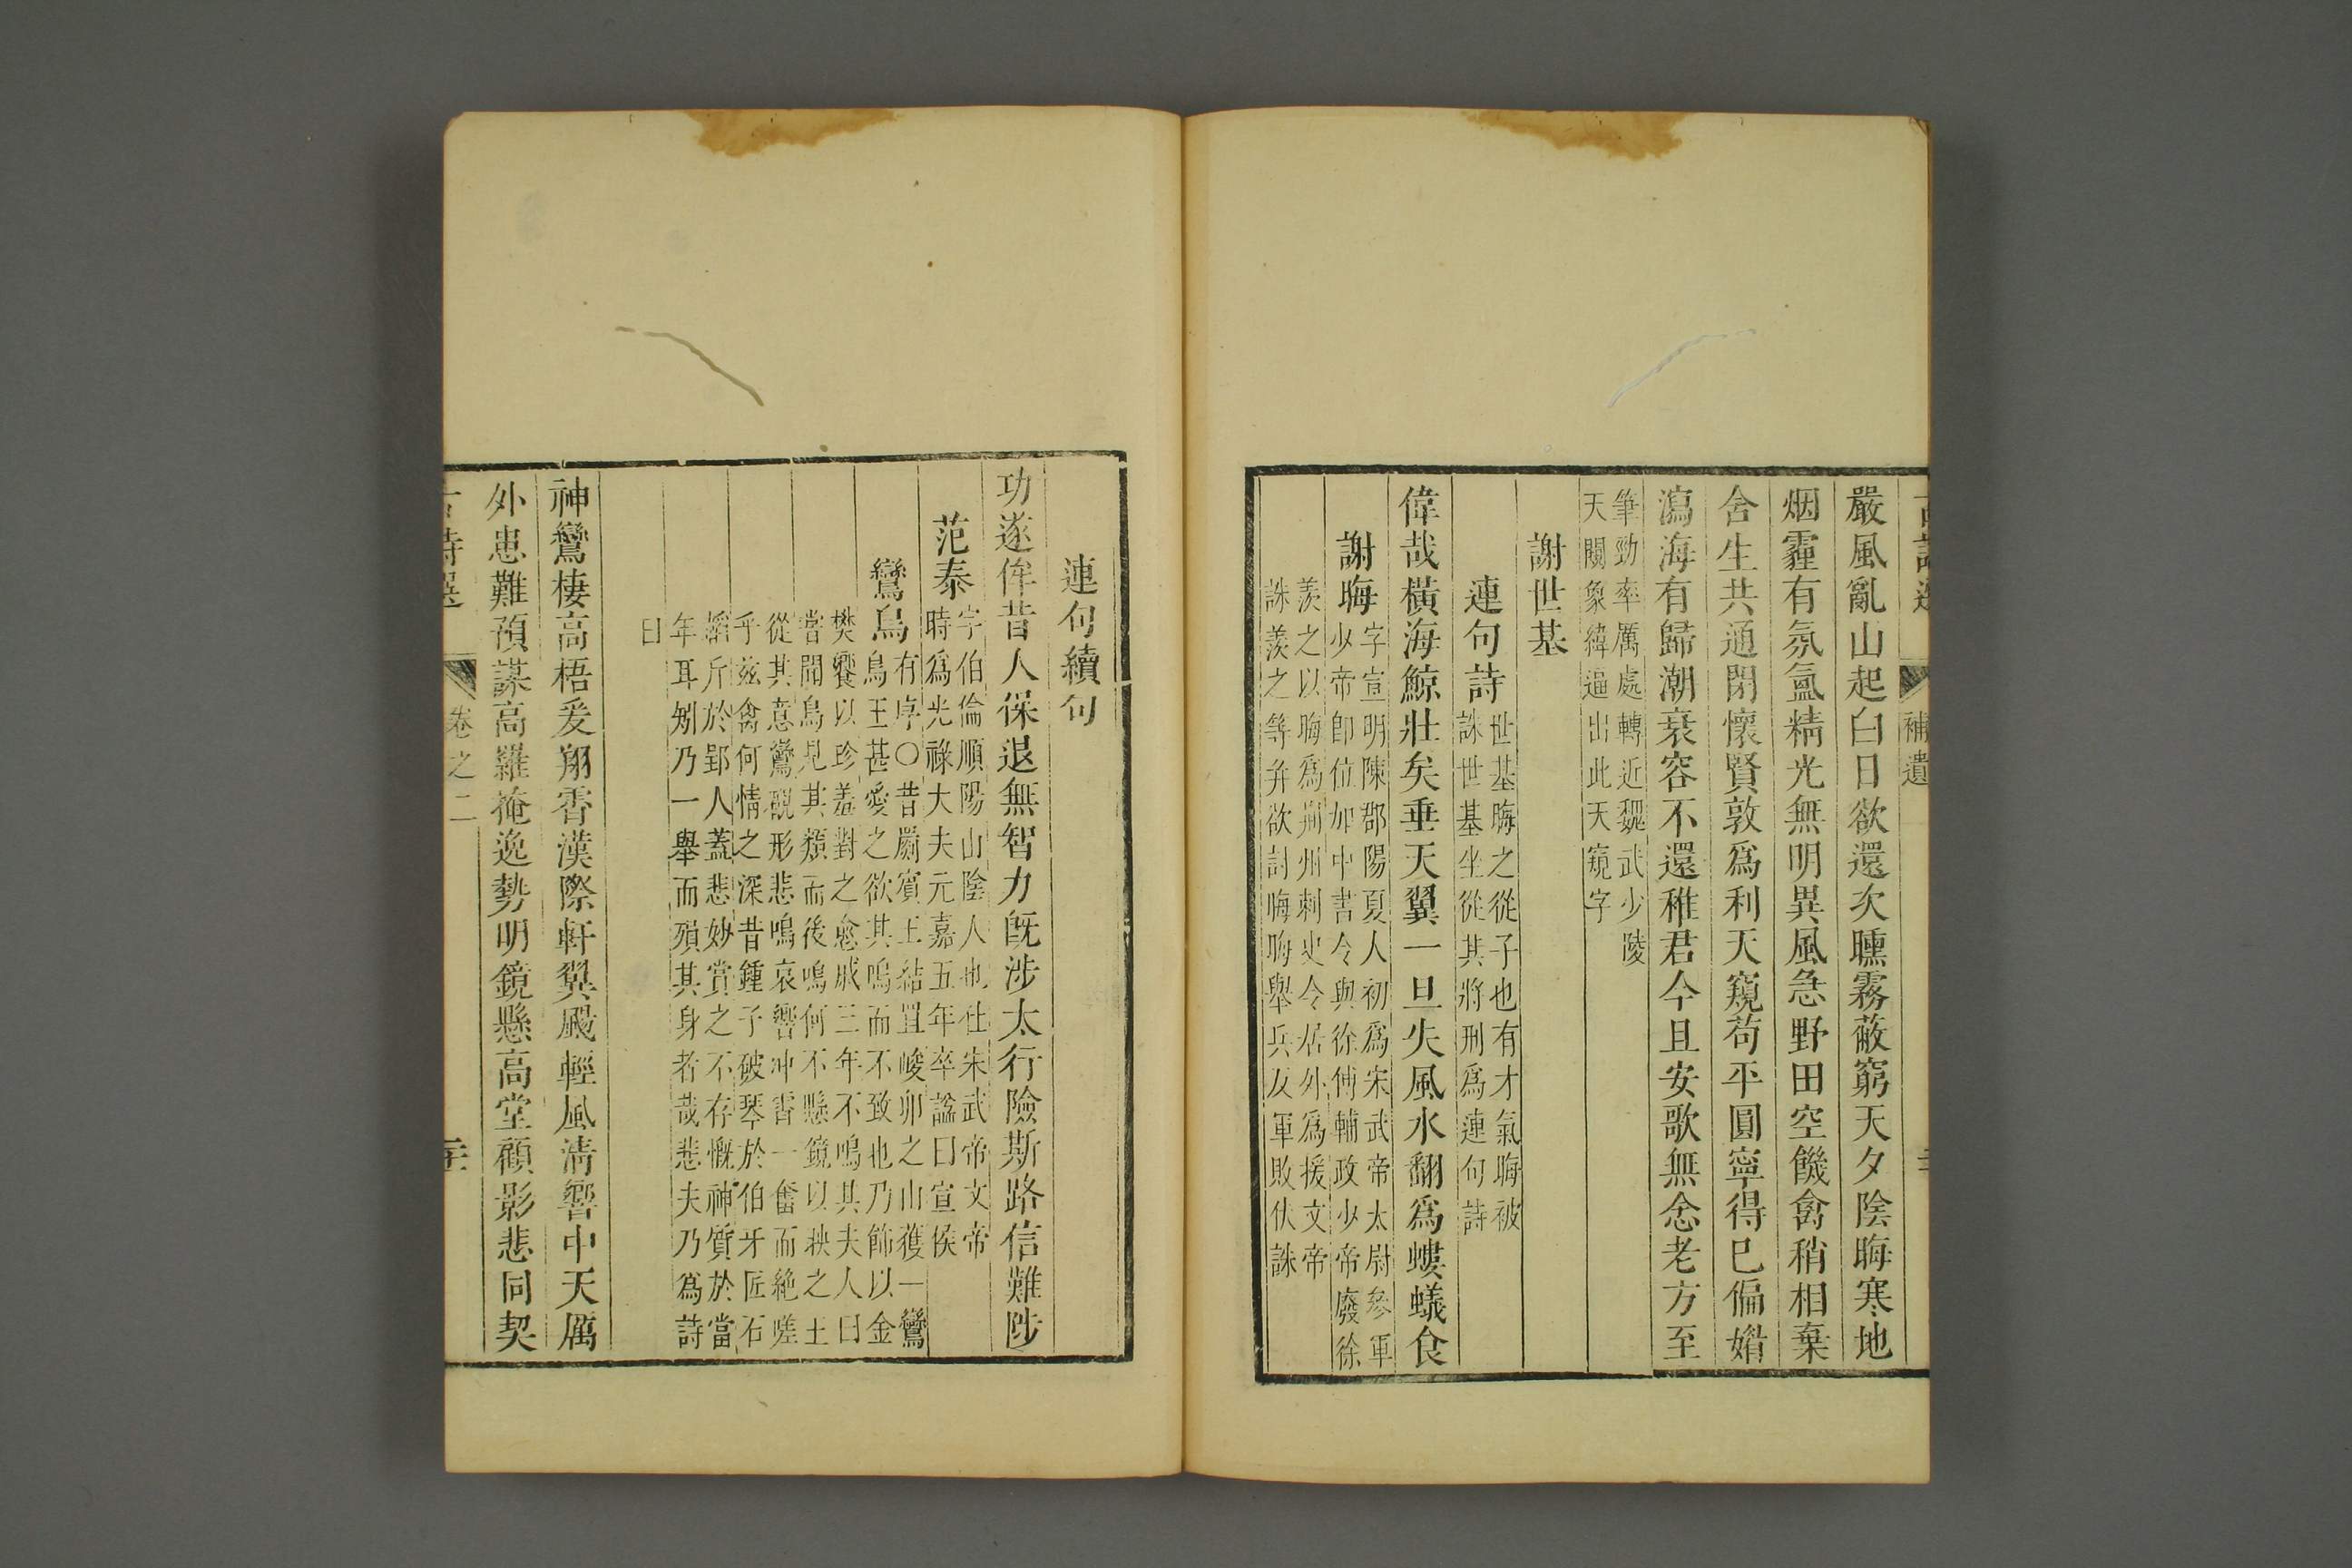 古詩選 補遺
嚴風亂山起白日欲還次曛霧蔽窮天夕陰晦寒地
烟霾有氛氳精光無明異風急野田空饑禽稍相棄
含生共通閉懷賢敦爲利天窺苟平圓寧得已偏媘
瀉海有歸潮衰容不還稚君今且安歌無念老方至
筆勁率厲處轉近魏武少陵
天闚象緯逼出此天窺字
謝世基
連句詩
世基晦之從子也有才氣晦被
誅世基坐從其將刑爲連句詩
偉哉橫海鯨壯矣垂天翼一旦失風水翻爲螻蟻食
謝晦
字宣明陳郡陽夏人初爲宋武帝太尉參軍
少帝卽位加中書令與徐傅輔政少帝廢徐
羨之以晦爲荆州刺史令居外爲援文帝
誅羨之等幷欲討晦晦舉兵反軍敗伏誅
連句續句
功遂侔昔人保退無智力旣涉太行險斯路信難陟
范泰
字伯倫順陽山陰人也仕宋武帝文帝
時爲光祿大夫元嘉五年卒諡曰宣侯
鸞鳥
有序○昔罽賓王結罝峻卯之山獲一鸞
鳥王甚愛之欲其鳴而不致也乃飾以金
樊饗以珍羞對之愈戚三年不鳴其夫人曰
嘗聞鳥見其類而後鳴何不懸鏡以映之王
從其意鸞覩形悲鳴哀響冲霄一奮而絶嗟
乎兹禽何情之深昔鍾子破琴於伯牙匠石
韜斤於郢人蓋悲妙賞之不存慨神質於當
年耳矧乃一舉而殞其身者哉悲夫乃爲詩
曰
神鸞棲高梧爰翔霄漢際軒翼颺輕風清響中天厲
外患難預謀高羅掩逸勢明鏡懸高堂顧影悲同契
古詩選 卷之二